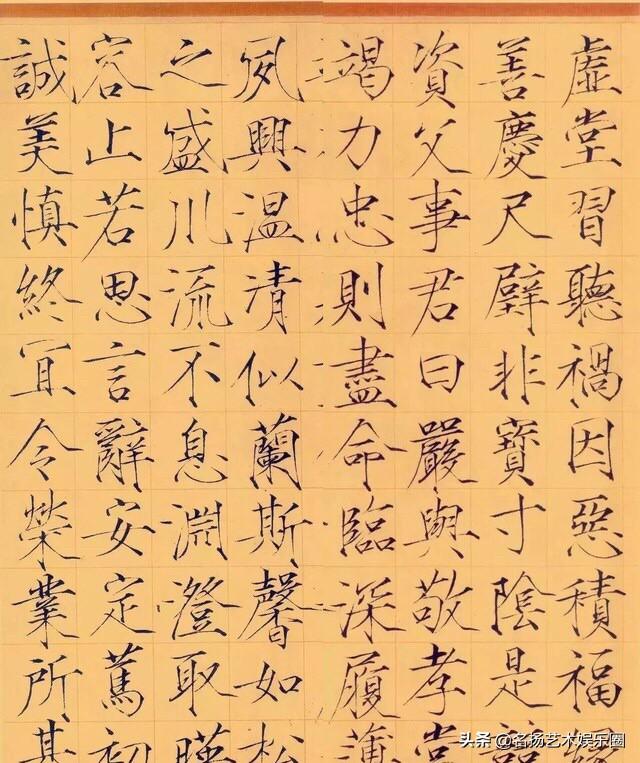 虛堂習聽禍因惡積福
善慶尺璧非寶寸陰是
資父事君曰嚴與敬孝當
竭力忠則盡命臨深履薄
夙興溫清似蘭斯馨如松
之盛川流不息淵澄取暎
容止若思言辭安定篤初
誠美慎終宜令榮業所基
头条 @名扬艺术娱乐圈